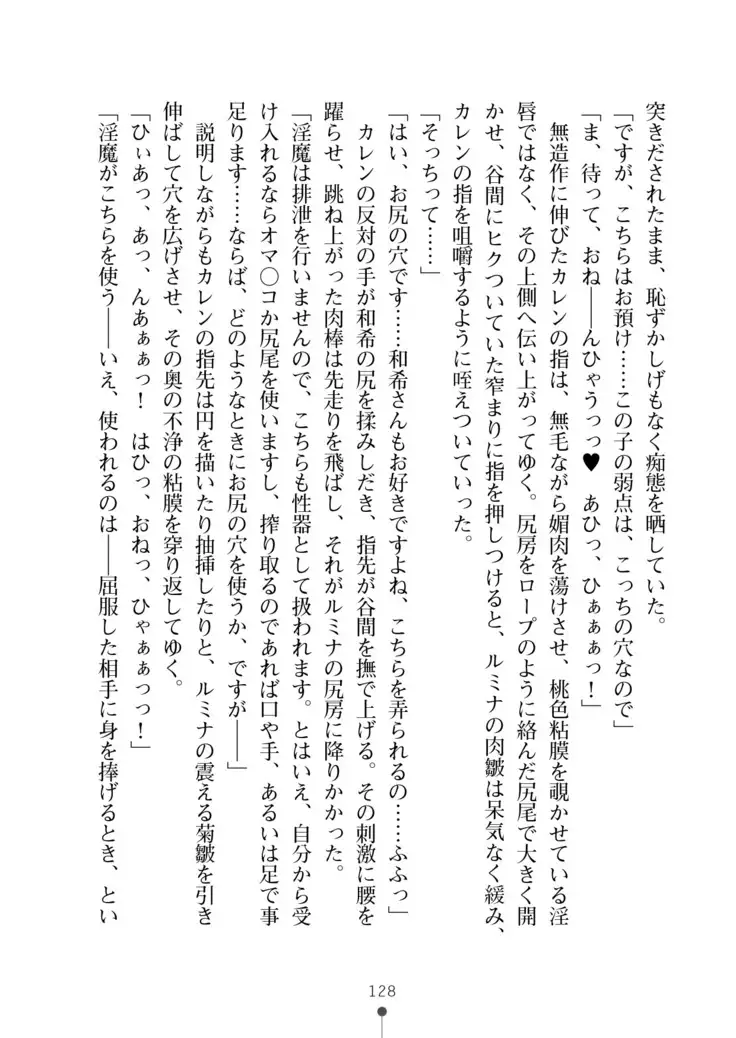 突きだされたまま、恥ずかしげもなく痴態を晒していた。
「ですが、こちらはお預け……この子の弱点は、こっちの穴なので」
「ま、待って、おね――んひゃうっっ♥　あひっ、ひぁぁぁっ！」
無造作に伸びたカレンの指は、無毛ながら媚肉を蕩けさせ、桃色粘膜を覗かせている淫
唇ではなく、その上側へ伝い上がってゆく。尻房をロープのように絡んだ尻尾で大きく開
かせ、谷間にヒクついていた窄まりに指を押しつけると、ルミナの肉皺は呆気なく緩み、
カレンの指を咀嚼するように咥えついていった。
「そっちって……」
「はい、お尻の穴です……和希さんもお好きですよね、こちらを弄られるの……ふふっ」
カレンの反対の手が和希の尻を揉みしだき、指先が谷間を撫で上げる。その刺激に腰を
躍らせ、跳ね上がった肉棒は先走りを飛ばし、それがルミナの尻房に降りかかった。
「淫魔は排泄を行いませんので、こちらも性器として扱われます。とはいえ、自分から受
け入れるならオマ〇コか尻尾を使いますし、搾り取るのであれば口や手、あるいは足で事
足ります……ならば、どのようなときにお尻の穴を使うか、ですが――」
説明しながらもカレンの指先は円を描いたり抽挿したりと、ルミナの震える菊皺を引き
伸ばして穴を広げさせ、その奥の不浄の粘膜を穿り返してゆく。
「ひぃあっ、あっ、んあぁぁっ！　はひっ、おねっ、ひゃぁぁっっ！」
「淫魔がこちらを使う――いえ、使われるのは――屈服した相手に身を捧げるとき、とい
128